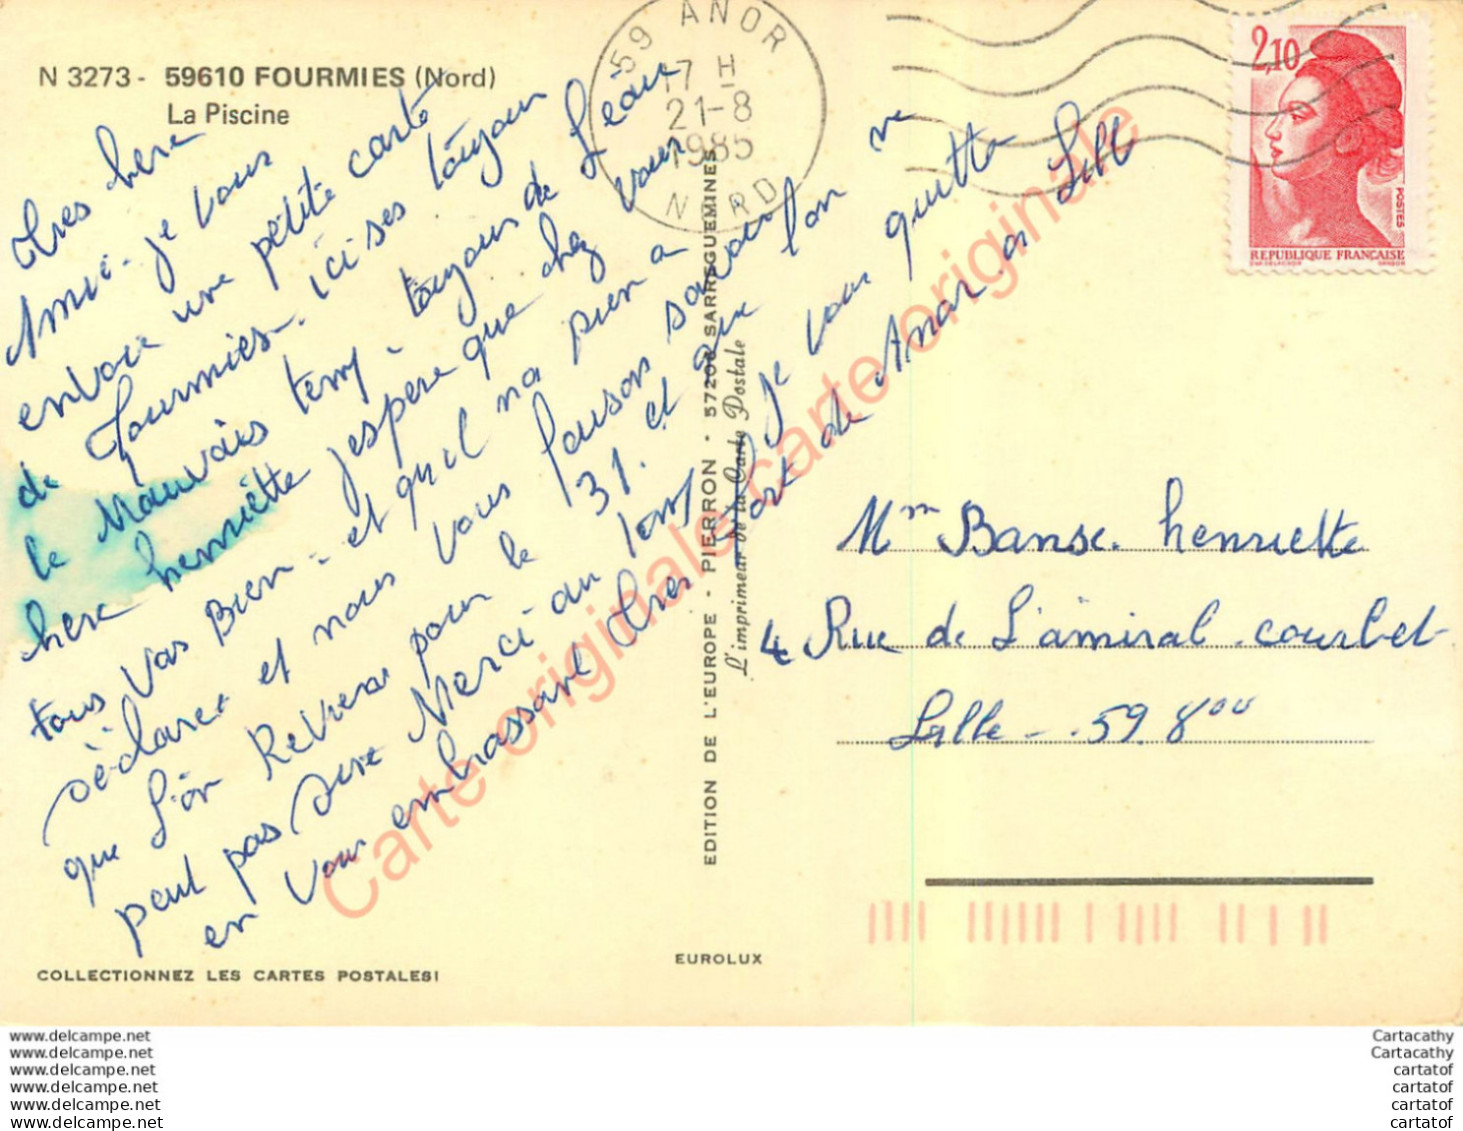 N 3273 - 59610 FOURMIES (Nord)
La Piscine
59 ANOR
17 H
21-8
1985
NORD
2,10
POSTES
REPUBLIQUE FRANÇAISE
tres here
Amie. je vous
envoie une petite carte
de Fourmies. ici ses toujour
le Mauvais temp. toujours de L'eau
here henriette j'espere que chez vous
tous Vas Bien. et qu'il na rien a
déclarer et nous vous faison savoir
que L'on Reviens pour le 31. et que lon ne
peut pas Merci au temp Je vous quitte
en Vous embrassant tres fort de Anor a Lille
EDITION DE L'EUROPE - PIERRON - 57206 SARREGUEMINES
L'imprimeur de la Carte Postale
Mm Banse. henriette
4 Rue de L'amiral courbet
Lille - 59.800
COLLECTIONNEZ LES CARTES POSTALES!
EUROLUX
Carte originale carte originale
www.delcampe.net
www.delcampe.net
www.delcampe.net
www.delcampe.net
www.delcampe.net
www.delcampe.net
Cartacathy
Cartacathy
cartatof
cartatof
cartatof
cartatof